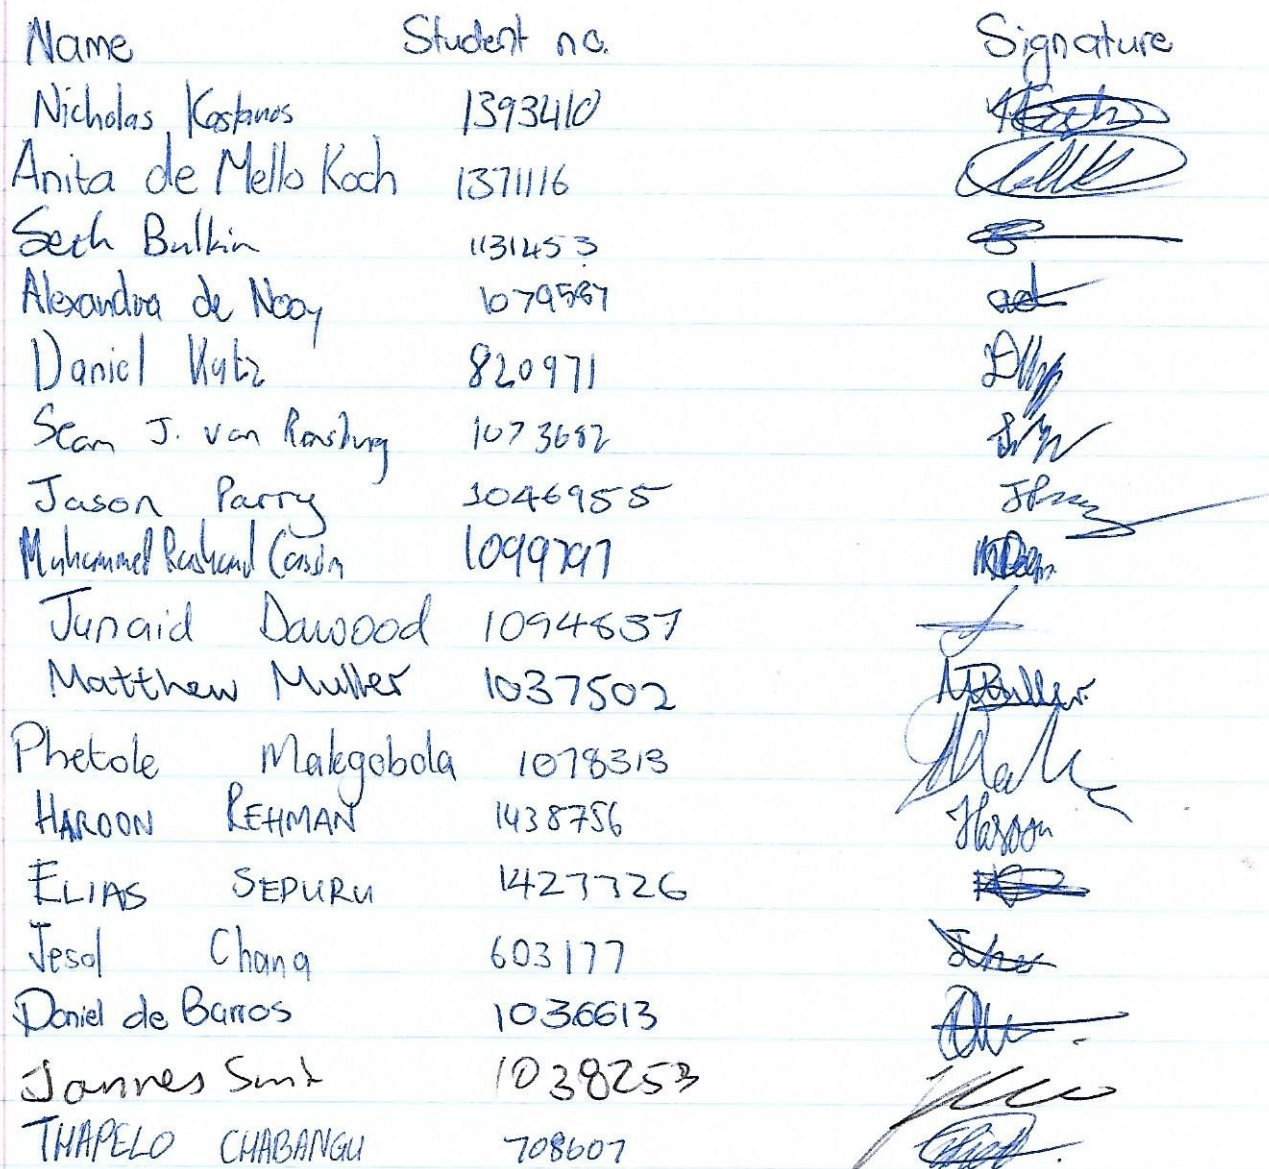 Name Student no. Signature
Nicholas Kostanos 1393410
Anita de Mello Koch 1371116
Seth Bulkin 1131453
Alexandra de Nooy 1079587
Daniel Katz 820971
Sean J. van 
Jason Parry 1046955
Muhammed Rashaad Cassim 1099797
Junaid Dawood 1094837
Matthew Muller 1037502
Phetole Makgobola 1078313
HAROON REHMAN 1438756 Haroon
ELIAS SEPURU 1427726
Jesal Chana 603177
Daniel de Barros 1036613
Jannes Smit 1038253
THAPELO CHABANGU 708607